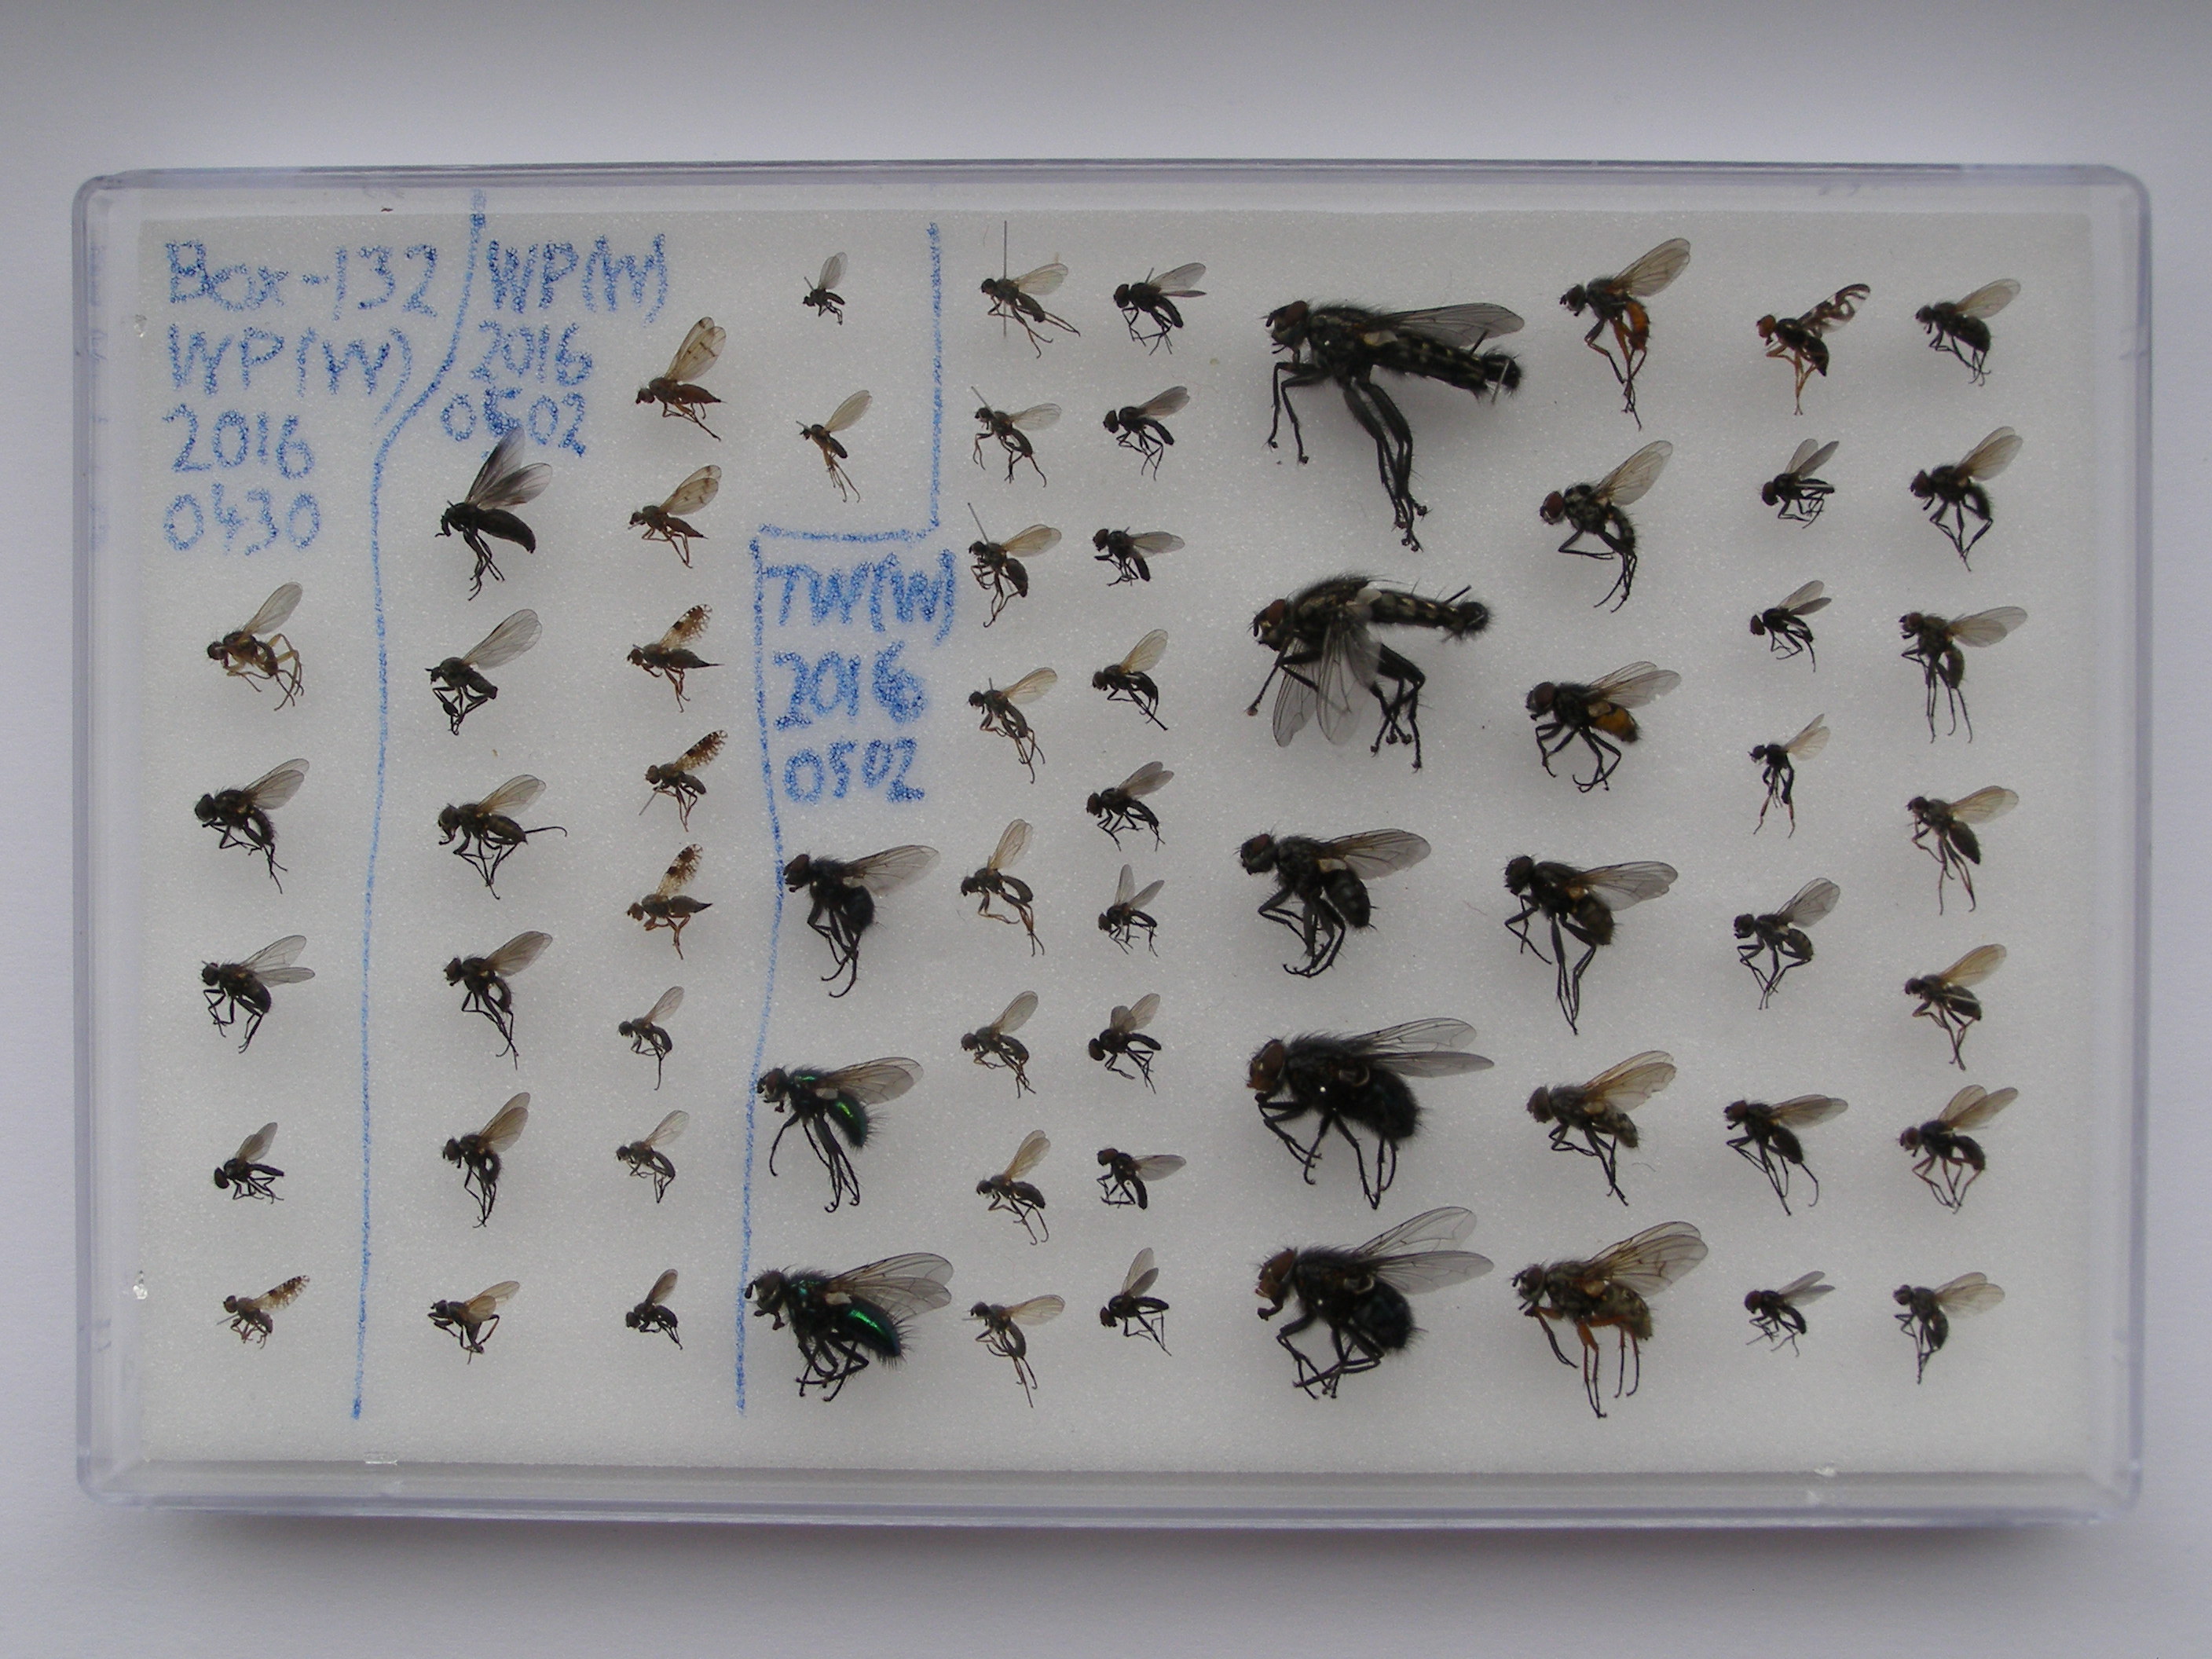 Box-132
WP(W)
2016
0430
WP(W)
2016
0502
TW(W)
2016
0502